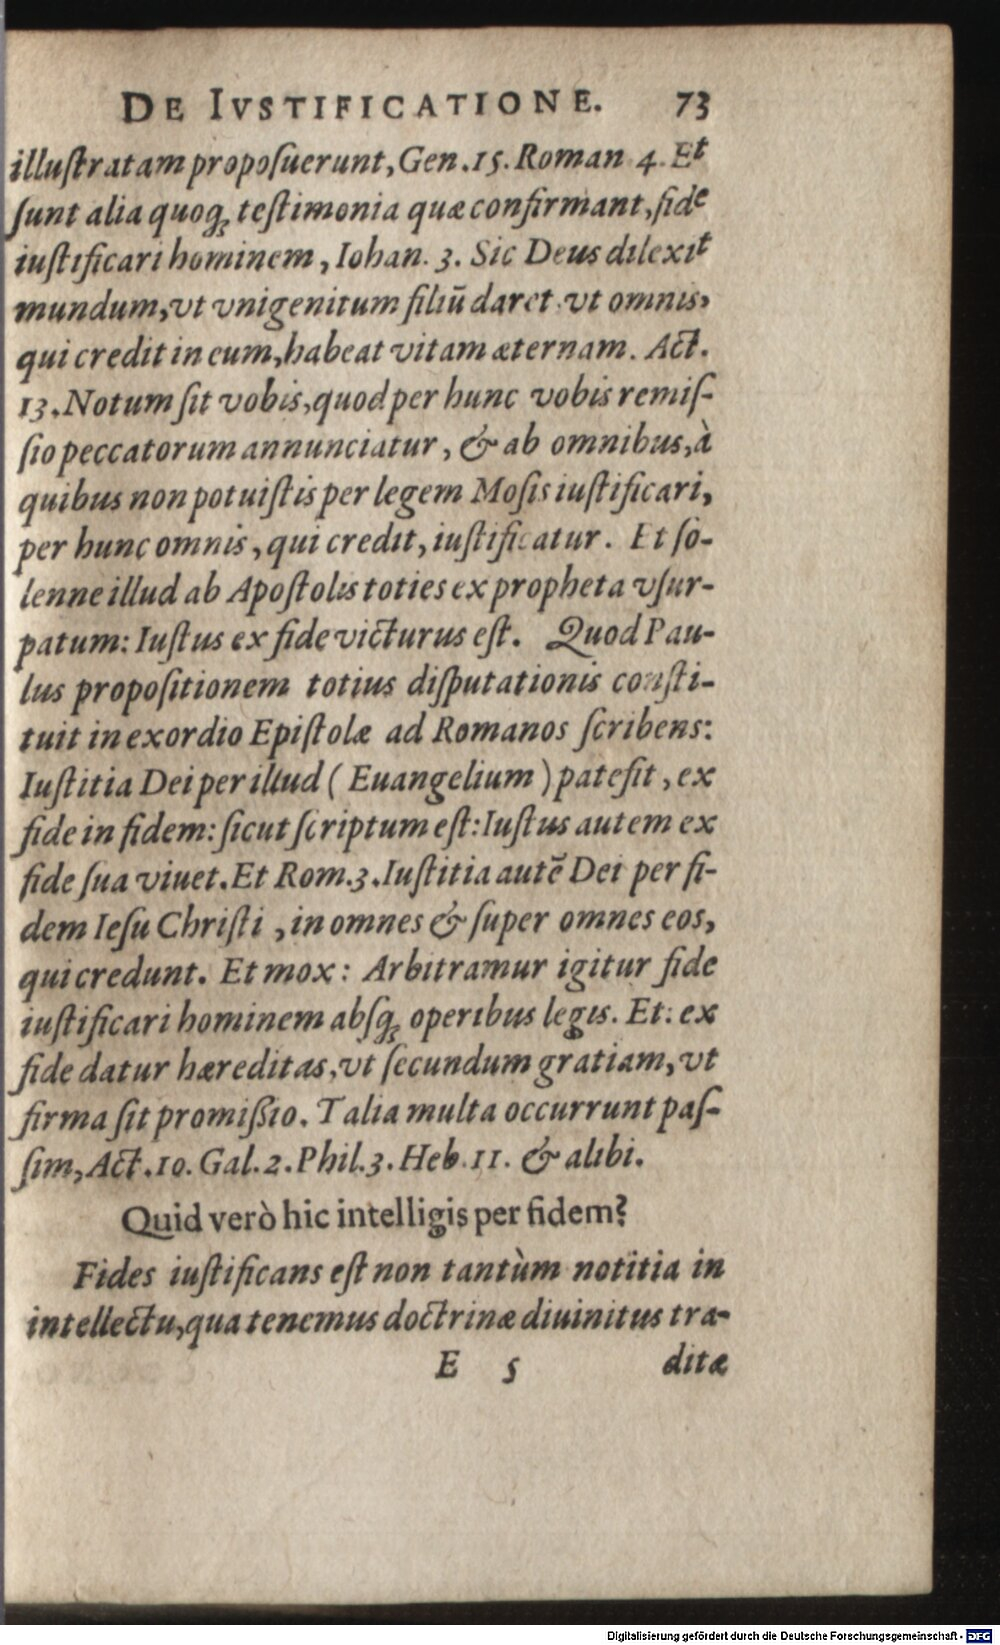 DE IVSTIFICATIONE. 73
illuſtratam propoſuerunt, Gen. 15. Roman 4. Et
ſunt alia quoq; teſtimonia quæ confirmant, fide
iuſtificari hominem, Iohan. 3. Sic Deus dilexit
mundum, vt vnigenitum filiū daret vt omnis,
qui credit in eum, habeat vitam æternam. Act.
13. Notum ſit vobis, quod per hunc vobis remiſ-
ſio peccatorum annunciatur, & ab omnibus, à
quibus non potuiſtis per legem Moſis iuſtificari,
per hunc omnis, qui credit, iuſtificatur. Et ſo-
lenne illud ab Apoſtolis toties ex propheta vſur-
patum: Iuſtus ex fide victurus eſt. Quod Pau-
lus propoſitionem totius diſputationis conſti-
tuit in exordio Epiſtolæ ad Romanos ſcribens:
Iuſtitia Dei per illud ( Euangelium ) patefit, ex
fide in fidem: ſicut ſcriptum eſt: Iuſtus autem ex
fide ſua viuet. Et Rom. 3. Iuſtitia autē Dei per fi-
dem Ieſu Chriſti, in omnes & ſuper omnes eos,
qui credunt. Et mox: Arbitramur igitur fide
iuſtificari hominem abſq; operibus legis. Et: ex
fide datur hæreditas, vt ſecundum gratiam, vt
firma ſit promiſsio. Talia multa occurrunt paſ-
ſim, Act. 10. Gal. 2. Phil. 3. Heb. 11. & alibi.
Quid verò hic intelligis per fidem?
Fides iuſtificans eſt non tantùm notitia in
intellectu, qua tenemus doctrinæ diuinitus tra-
E 5 ditæ
Digitalisierung gefördert durch die Deutsche Forschungsgemeinschaft - DFG